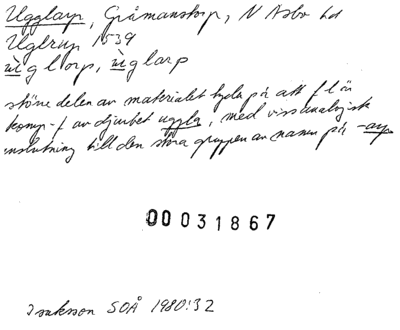 Ugglarp, Gråmanstorp, N Åsbo hd
Uglrup 1539
ùglorp, ùglarp
större delen av materialet tyder på att f l är
komp-f av djurbet uggla, med viss analogisk
anslutning till den stora gruppen av namn på -arp
00031867
Isaksson SOÅ 1980:32